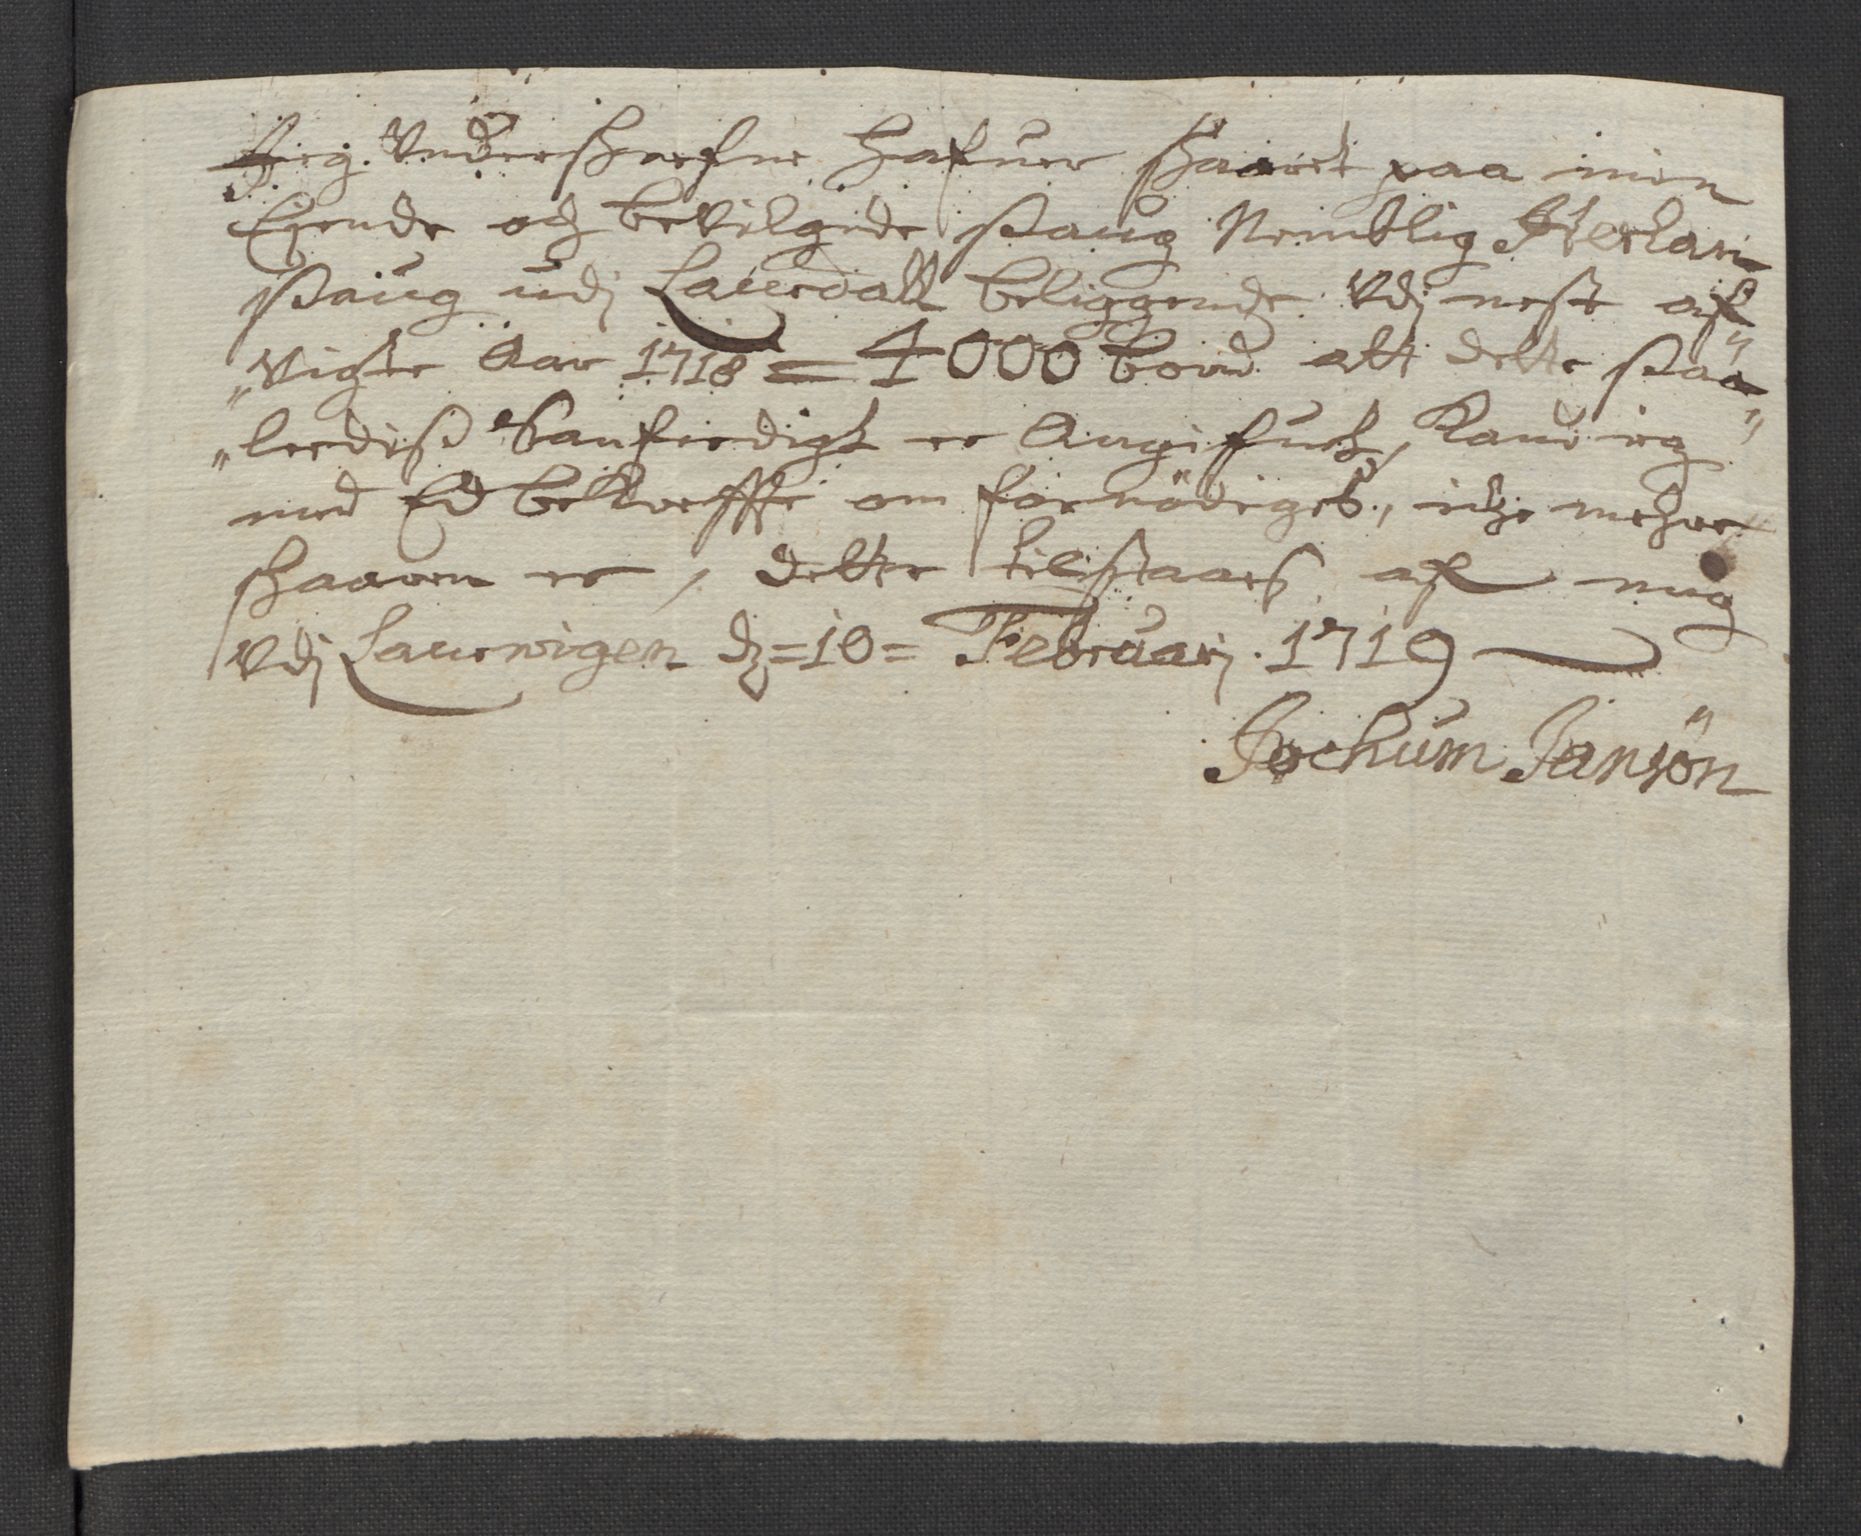 Jeg Underskrefne Hafuer skaaret paa min
Eiende och beVilgede Saug Nemblig Herland
Saug udj Laurdall beliggende Vdj nest af„
„Vigte Aar 1718 = 4000 bord att dette saa„
„lediss Sanferdigt er Angifuet, Kand ieg
med Ed bekreffte om fornödiges, icke mehre
skaaren er, dette tilstaars af mig
Vdj Laurwigen d = 10 = Februarj. 1719
Jochum Jansön